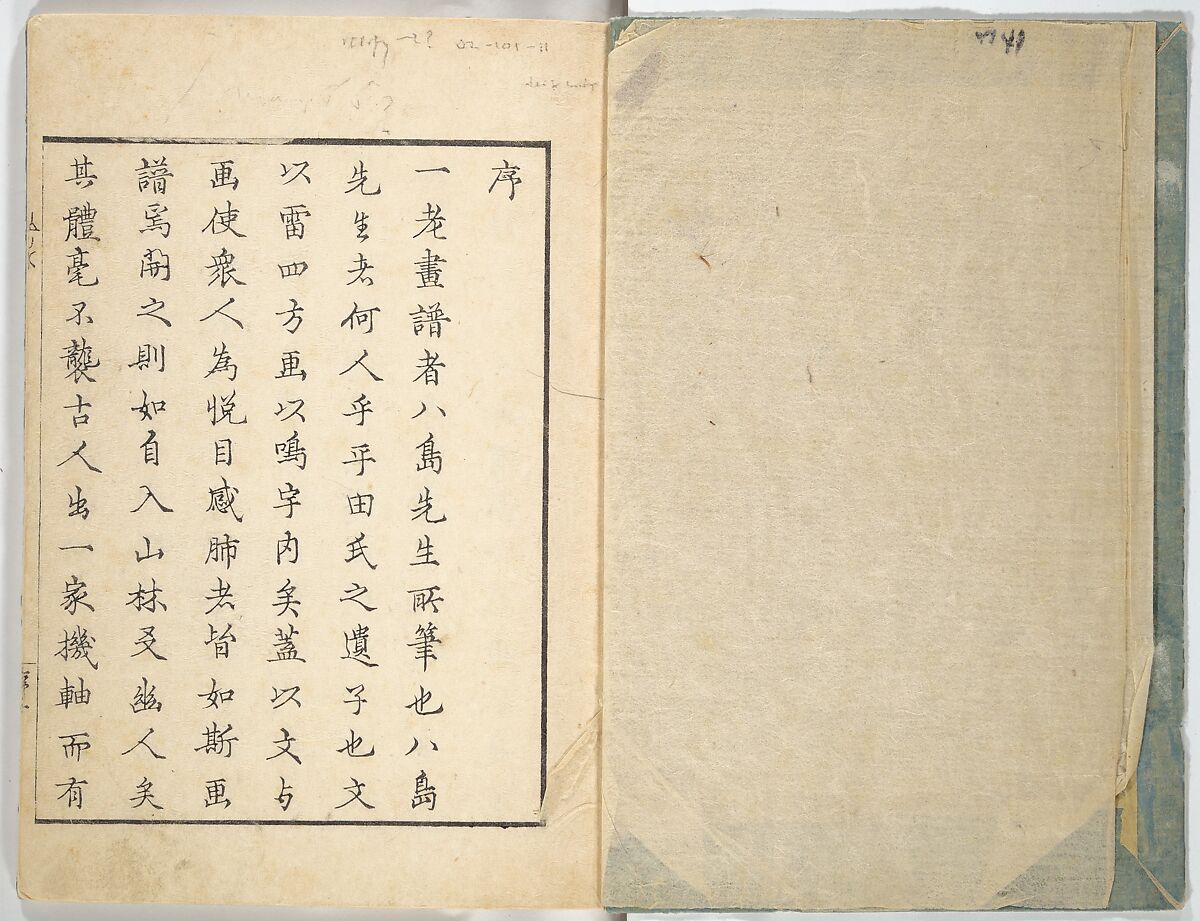 序
一老畫譜者八島先生所筆也八島
先生者何人乎平由氏之遺子也文
以雷四方画以鳴宇内矣蓋以文与
画使衆人為悦目感肺者皆如斯画
譜焉開之則如自入山林叟幽人矣
其體毫不襲古人出一家機軸而有